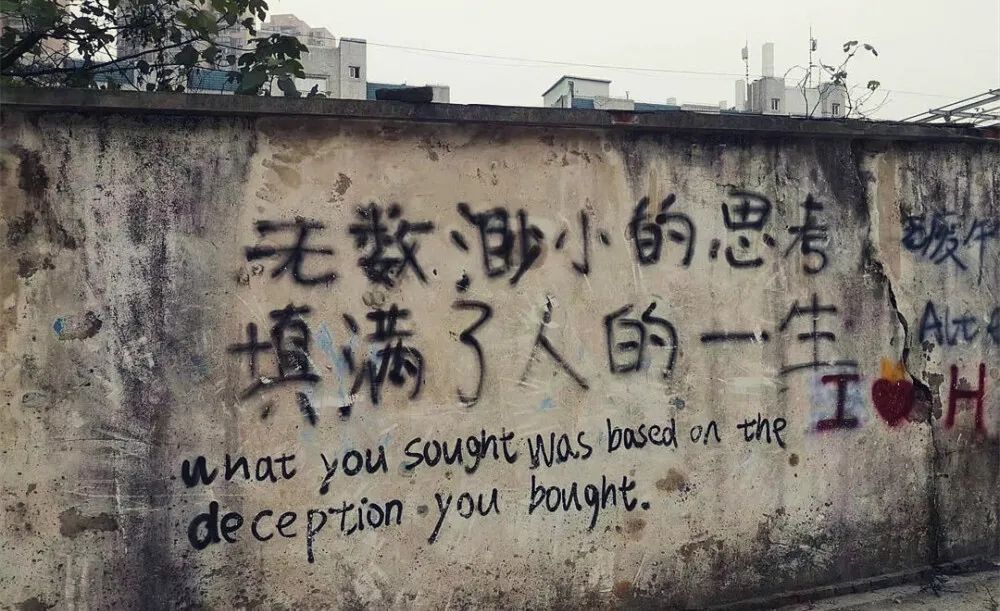 无数渺小的思考
填满了人的一生
what you sought was based on the
deception you bought.
I ❤ H
Alt